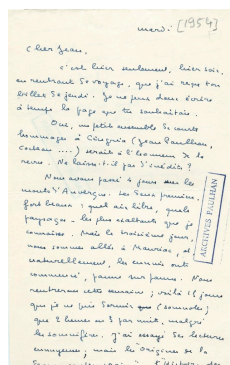 mardi. [1954]
Cher Jean,
c'est hier seulement, hier soir,
en rentrant de voyage, que j'ai reçu ton
billet de jeudi. Je ne peux donc écrire
à temps la page que tu souhaitais.
Oui, un petit ensemble de courts
hommages à Cingria (Jean Paulhan,
Cocteau ....) serait à l'honneur de la
revue. Ne laisse-t-il pas d'inédits ?
Nous avons passé 4 jours sur les
monts d'Auvergne. Les deux premiers,
fort beaux : quel air libre, quels
paysages - les plus exaltants que je
connaisse. Mais le troisième jour,
nous sommes allés à Mauriac, et
naturellement, les ennuis ont
commencé, panne sur panne. Nous
rentrerons cette semaine ; voilà 15 jours
que je ne puis dormir (somnole)
que 2 heures ou 3 par nuit, malgré
le somnifère. J'ai essayé des lectures
ennuyeuses ; mais les Origines de la
ARCHIVES PAULHAN